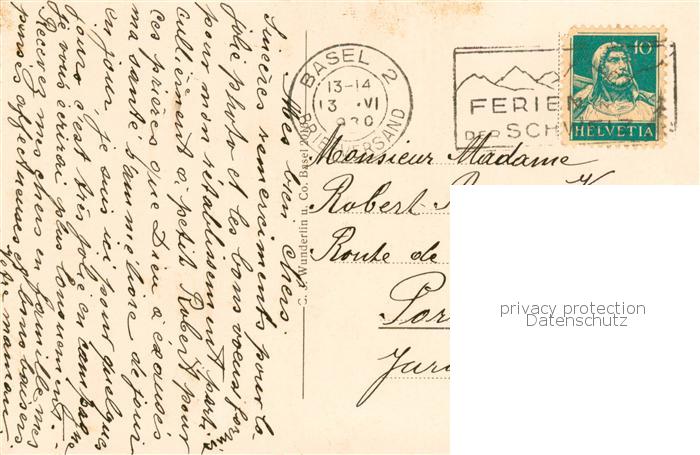 Mes bien chers.
Sincères remerciments pour la
jolie photo et les bons voeux for
pour mon rétablissement parti-
culièrement a petit Robert pour
ces prières que Dieu a éxaucés
ma santé s'amméliore de jour
en jour, je suis ici pour quelques
jours c'est très joli en campagne
je vous écrirai plus longuement.
Recevez mes chers en famille mes
pensées affectueuses et bons baisers
votre maman.
C. J. Wunderlin u. Co. Basel
BASEL 2
13-14
13. VI
930
BRIEFVERSAND
FERIEN
DER SCHW
10
HELVETIA
Monsieur Madame
Robert
Route de
Por
Jura
privacy protection
Datenschutz